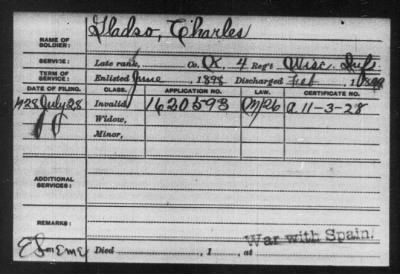 NAME OF SOLDIER: Gladso, Charles
SERVICE: Late rank, Co. K, 4 Reg't Wisc. Inf.
TERM OF SERVICE: Enlisted June, 1898 Discharged Feb, 1899
DATE OF FILING. CLASS. APPLICATION NO. LAW. CERTIFICATE NO.
1928 July 28 Invalid, 1620593 A 11-3-28
Widow,
Minor,
ADDITIONAL SERVICES:
REMARKS:
Died , 1 , at
War with Spain.